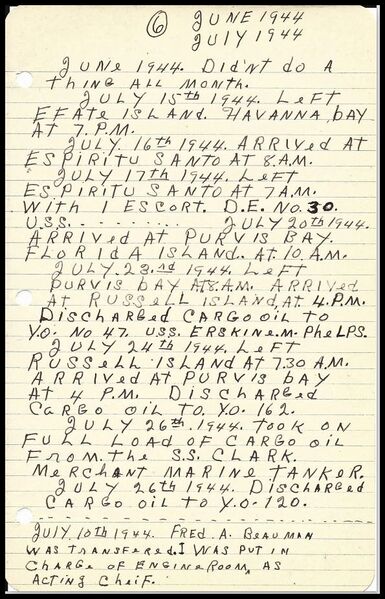 6 JUNE 1944
JULY 1944
JUNE 1944. DID'NT DO A
THING ALL MONTH.
JULY 15th 1944. LEFT
EFATE ISLAND. HAVANNA BAY
AT 7. P.M.
JULY. 16th 1944. ARRIVED AT
ESPIRITU SANTO AT 8.A.M.
JULY 17th 1944. LEFT
ESPIRITU SANTO AT 7AM.
WITH 1 ESCORT. D.E. NO. 30.
U.S.S. . . . . . . . . . . JULY 20th 1944.
ARRIVED AT PURVIS BAY.
FLORIDA ISLAND. AT. 10. A.M.
JULY. 23.rd 1944. LEFT
PURVIS BAY AT 8.A.M. ARRIVED
AT RUSSELL ISLAND, AT 4.P.M.
DISCHARGED CARGO OIL TO
Y.O. NO 47. U.S.S. ERSKINE.M. PHELPS.
JULY 24th 1944 LEFT
RUSSELL ISLAND AT 7.30 A.M.
ARRIVED AT PURVIS BAY
AT 4 P.M. DISCHARGED
CARGO OIL TO Y.O. 162.
JULY 26th. 1944. TOOK ON
FULL LOAD OF CARGO OIL
FROM. THE S.S. CLARK.
MERCHANT MARINE TANKER.
JULY 26th 1944. DISCHARGED
CARGO OIL TO Y.O-120.
JULY 10th 1944. FRED. A. BEAUMAN
WAS TRANSFERED. I WAS PUT IN
CHARGE OF ENGINEROOM, AS
ACTING CHEIF.